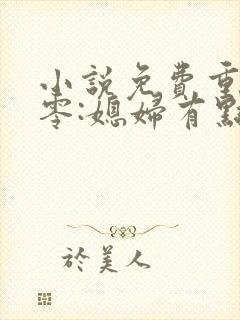 小說免費重
零:媳婦有點
於美人